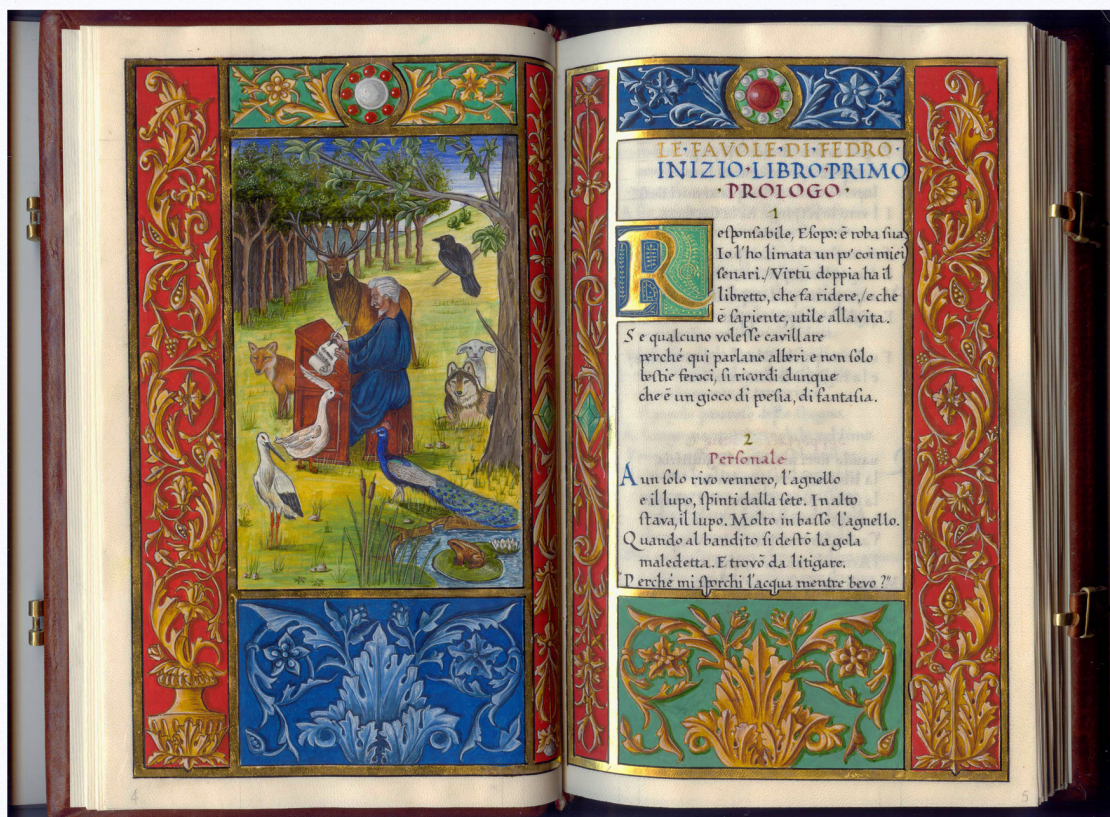 LE·FAVOLE·DI·FEDRO·
INIZIO·LIBRO·PRIMO
·PROLOGO·
1
Responsabile, Esopo: è roba sua
Io l'ho limata un po' coi miei
senari./Virtù doppia ha il
libretto, che fa ridere,/e che
è sapiente, utile alla vita.
Se qualcuno volesse cavillare
perché qui parlano alberi e non solo
bestie feroci, si ricordi dunque
che è un gioco di poesia, di fantasia.
2
Personale
A un solo rivo vennero, l'agnello
e il lupo, spinti dalla sete. In alto
stava, il lupo. Molto in basso l'agnello.
Quando al bandito si destò la gola
maledetta. E trovò da litigare.
Perché mi sporchi l'acqua mentre bevo?"
4
5